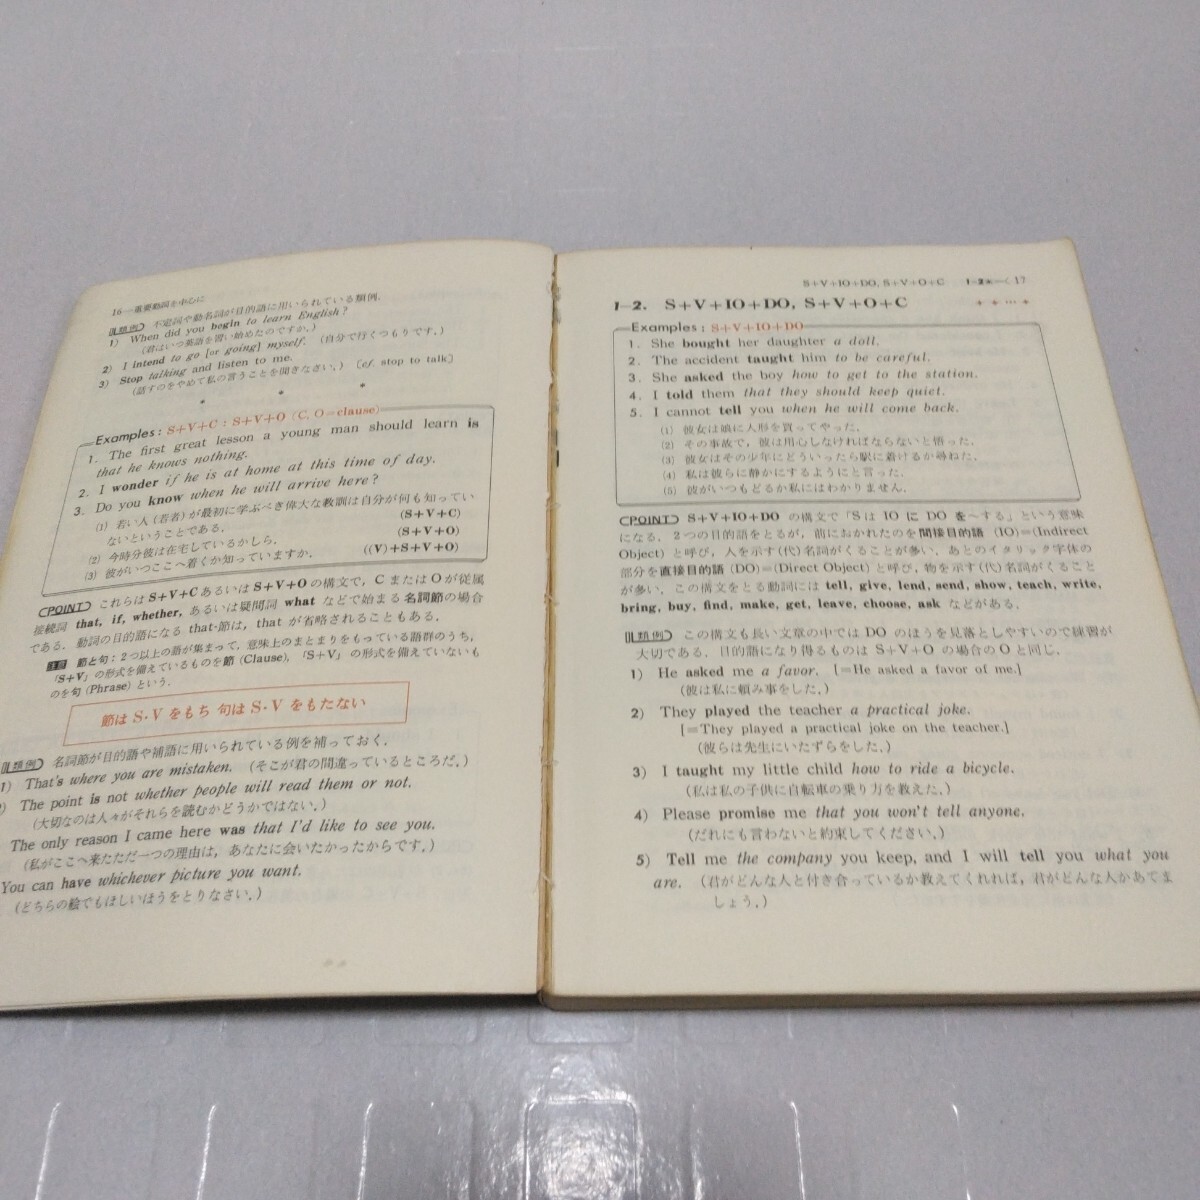 16—重要動詞を中心に
類例 不定詞や動名詞が目的語に用いられている類例.
1) When did you begin to learn English?
(君はいつ英語を習い始めたのですか.)
2) I intend to go [or going] myself. (自分で行くつもりです.)
3) Stop talking and listen to me.
(話すのをやめて私の言うことを聞きなさい.) [cf. stop to talk]
* * *
Examples: S+V+C : S+V+O (C, O=clause)
1. The first great lesson a young man should learn is
that he knows nothing.
2. I wonder if he is at home at this time of day.
3. Do you know when he will arrive here?
(1) 若い人(若者)が最初に学ぶべき偉大な教訓は自分が何も知ってい
ないということである. (S+V+C)
(2) 今時分彼は在宅しているかしら. (S+V+O)
(3) 彼がいつここへ着くか知っていますか. ((V)+S+V+O)
POINT これらは S+V+C あるいは S+V+O の構文で, C または O が従属
接続詞 that, if, whether, あるいは疑問詞 what などで始まる名詞節の場合
である. 動詞の目的語になる that-節は, that が省略されることもある.
注意 節と句:2つ以上の語が集まって, 意味上のまとまりをもっている語群のうち,
「S+V」の形式を備えているものを節 (Clause), 「S+V」の形式を備えていないも
のを句 (Phrase) という.
節は S・V をもち 句は S・V をもたない
類例 名詞節が目的語や補語に用いられている例を補っておく.
1) That's where you are mistaken. (そこが君の間違っているところだ.)
The point is not whether people will read them or not.
(大切なのは人々がそれらを読むかどうかではない.)
The only reason I came here was that I'd like to see you.
(私がここへ来たただ一つの理由は, あなたに会いたかったからです.)
You can have whichever picture you want.
(どちらの絵でもほしいほうをとりなさい.)
S+V+IO+DO, S+V+O+C 1-2 17
1-2. S+V+IO+DO, S+V+O+C
Examples: S+V+IO+DO
1. She bought her daughter a doll.
2. The accident taught him to be careful.
3. She asked the boy how to get to the station.
4. I told them that they should keep quiet.
5. I cannot tell you when he will come back.
(1) 彼女は娘に人形を買ってやった.
(2) その事故で, 彼は用心しなければならないと悟った.
(3) 彼女はその少年にどういったら駅に着けるか尋ねた.
(4) 私は彼らに静かにするようにと言った.
(5) 彼がいつもどるか私にはわかりません.
POINT S+V+IO+DO の構文で「S は IO に DO を〜する」という意味
になる. 2つの目的語をとるが, 前におかれたのを間接目的語 (IO)=(Indirect
Object) と呼び, 人を示す(代)名詞がくることが多い. あとのイタリック字体の
部分を直接目的語 (DO)=(Direct Object) と呼び, 物を示す(代)名詞がくること
が多い. この構文をとる動詞には tell, give, lend, send, show, teach, write,
bring, buy, find, make, get, leave, choose, ask などがある.
類例 この構文も長い文章の中では DO のほうを見落としやすいので練習が
大切である. 目的語になり得るものは S+V+O の場合の O と同じ.
1) He asked me a favor. [=He asked a favor of me.]
(彼は私に頼み事をした.)
2) They played the teacher a practical joke.
[=They played a practical joke on the teacher.]
(彼らは先生にいたずらをした.)
3) I taught my little child how to ride a bicycle.
(私は私の子供に自転車の乗り方を教えた.)
4) Please promise me that you won't tell anyone.
(だれにも言わないと約束してください.)
5) Tell me the company you keep, and I will tell you what you
are. (君がどんな人と付き合っているか教えてくれれば, 君がどんな人かあてま
しょう.)